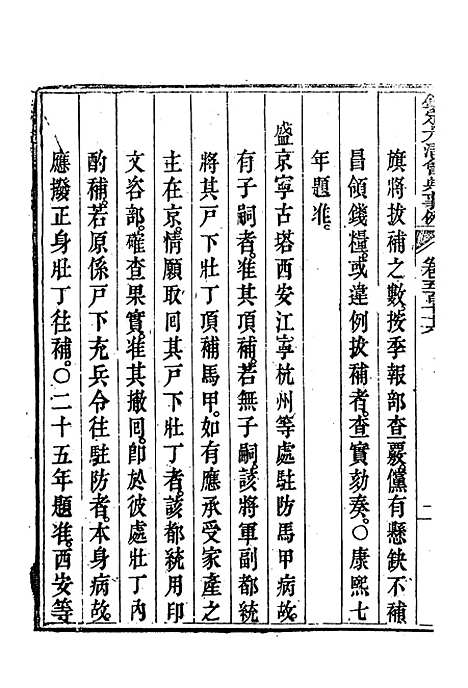 欽定大清會典事例 卷五百十六 二
旗將拔補之數按季報部查覈儻有懸缺不補
昌領錢糧或違例拔補者查實劾奏○康熙七
年題准
盛京寧古塔西安江寧杭州等處駐防馬甲病故
有子嗣者准其頂補若無子嗣該將軍副都統
將其戸下壯丁頂補馬甲如有應承受家產之
主在京情願取回其戸下壯丁者該都統用印
文咨部確查果實准其撤回卽於彼處壯丁內
酌補若原係戸下充兵令往駐防者本身病故
應撥正身壯丁往補○二十五年題准西安等